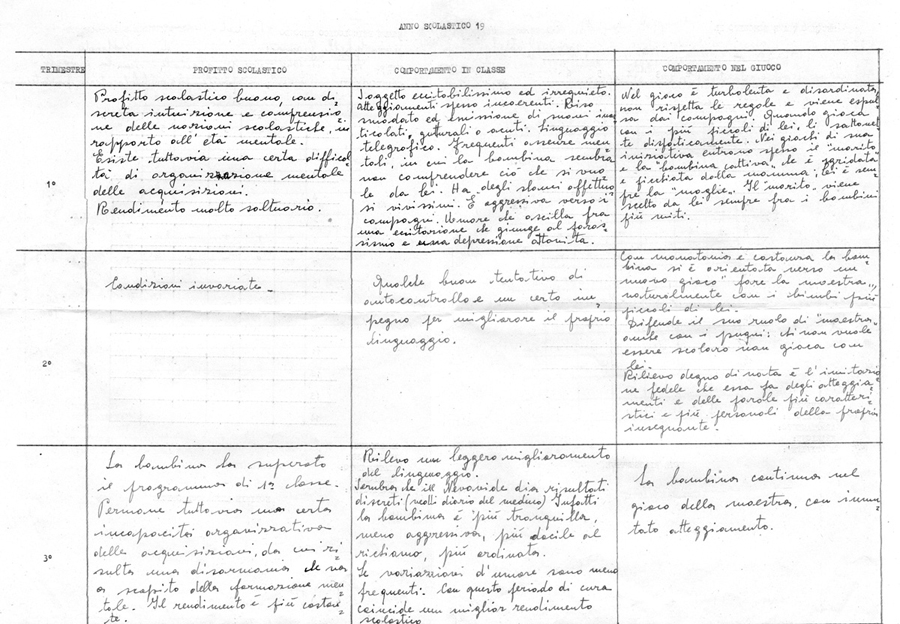 ANNO SCOLASTICO 19
TRIMESTRE
PROFITTO SCOLASTICO
COMPORTAMENTO IN CLASSE
COMPORTAMENTO NEL GIUOCO
1°
Profitto scolastico buono, con di=
screta intuizione e comprensio=
ne delle nozioni scolastiche, in
rapporto all'età mentale.
Esiste tuttavia una certa difficol
tà di organizzazione mentale
delle acquisizioni.
Rendimento molto saltuario.
Soggetto eccitabilissimo ed irrequieto.
Atteggiamenti spesso incoerenti. Riso
smodato ed emissione di suoni inar
ticolati, gutturali o acuti. Linguaggio
telegrafico. Frequenti assenze men
tali, in cui la bambina sembra
non comprendere ciò che si vuo
le da lei. Ha degli slanci affettivi
vivissimi. È aggressiva verso i
compagni. Umore che oscilla fra
una eccitazione che giunge al paros=
sismo e una depressione attonita.
Nel gioco è turbolenta e disordinata,
non rispetta le regole e viene espul
sa dai compagni. Quando gioca
con i più piccoli di lei, li sottomet
te dispoticamente. Nei giochi di sua
iniziativa entrano spesso il "marito"
e la "bambina cattiva" che è sgridata
e picchiata dalla mamma: lei è sem
pre la "moglie". Il marito viene
scelto da lei sempre fra i bambini
più miti.
2°
Condizioni invariate -
Qualche buon tentativo di
autocontrollo e un certo im=
pegno per migliorare il proprio
linguaggio.
Con monotonia e costanza la bam
bina si è orientata verso un
"nuovo gioco" fare la maestra,,
naturalmente con i bimbi più
piccoli di lei.
Difende il suo ruolo di "maestra,,
anche con i pugni: chi non vuole
essere scolaro non gioca con
lei.
Rilievo degno di nota è l'imitazio
ne fedele che essa fa degli atteggia=
menti e delle parole più caratteri=
stici e più personali della propria
insegnante.
3°
La bambina ha superato
il programma di 1ª classe.
Permane tuttavia una certa
incapacità organizzativa
delle acquisizioni, da cui ri=
sulta una disarmonia che va
a scapito della formazione men=
tale. Il rendimento è più costan=
te.
Rilevo un leggero miglioramento
del linguaggio.
Sembra che il dia risultati
discreti (vedi diario del medico) Infatti
la bambina è più tranquilla,
meno aggressiva, più docile al
richiamo, più ordinata.
Le variazioni d'umore sono meno
frequenti. Con questo periodo di cura
coincide un miglior rendimento
scolastico
La bambina continua nel
gioco della maestra, con immu
tato atteggiamento.